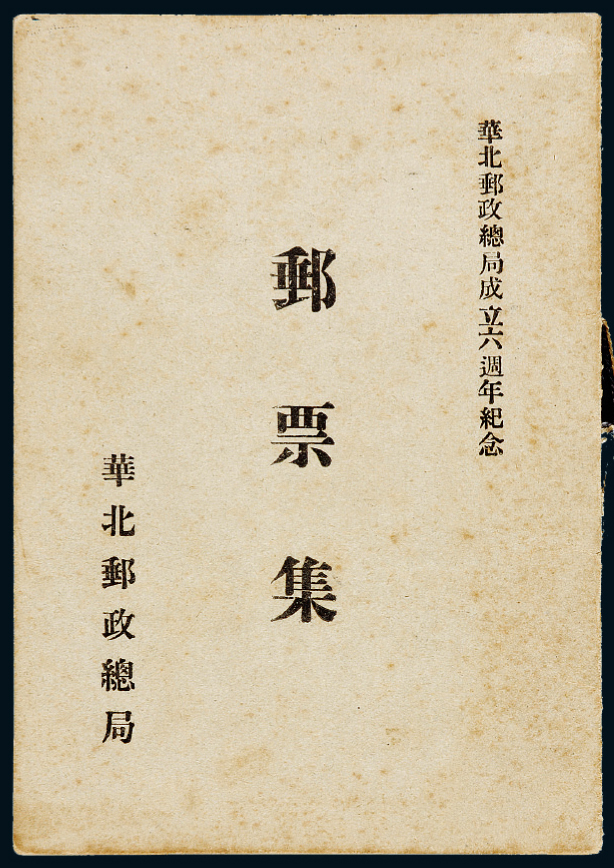 華北郵政總局成立六週年紀念
郵票集
華北郵政總局